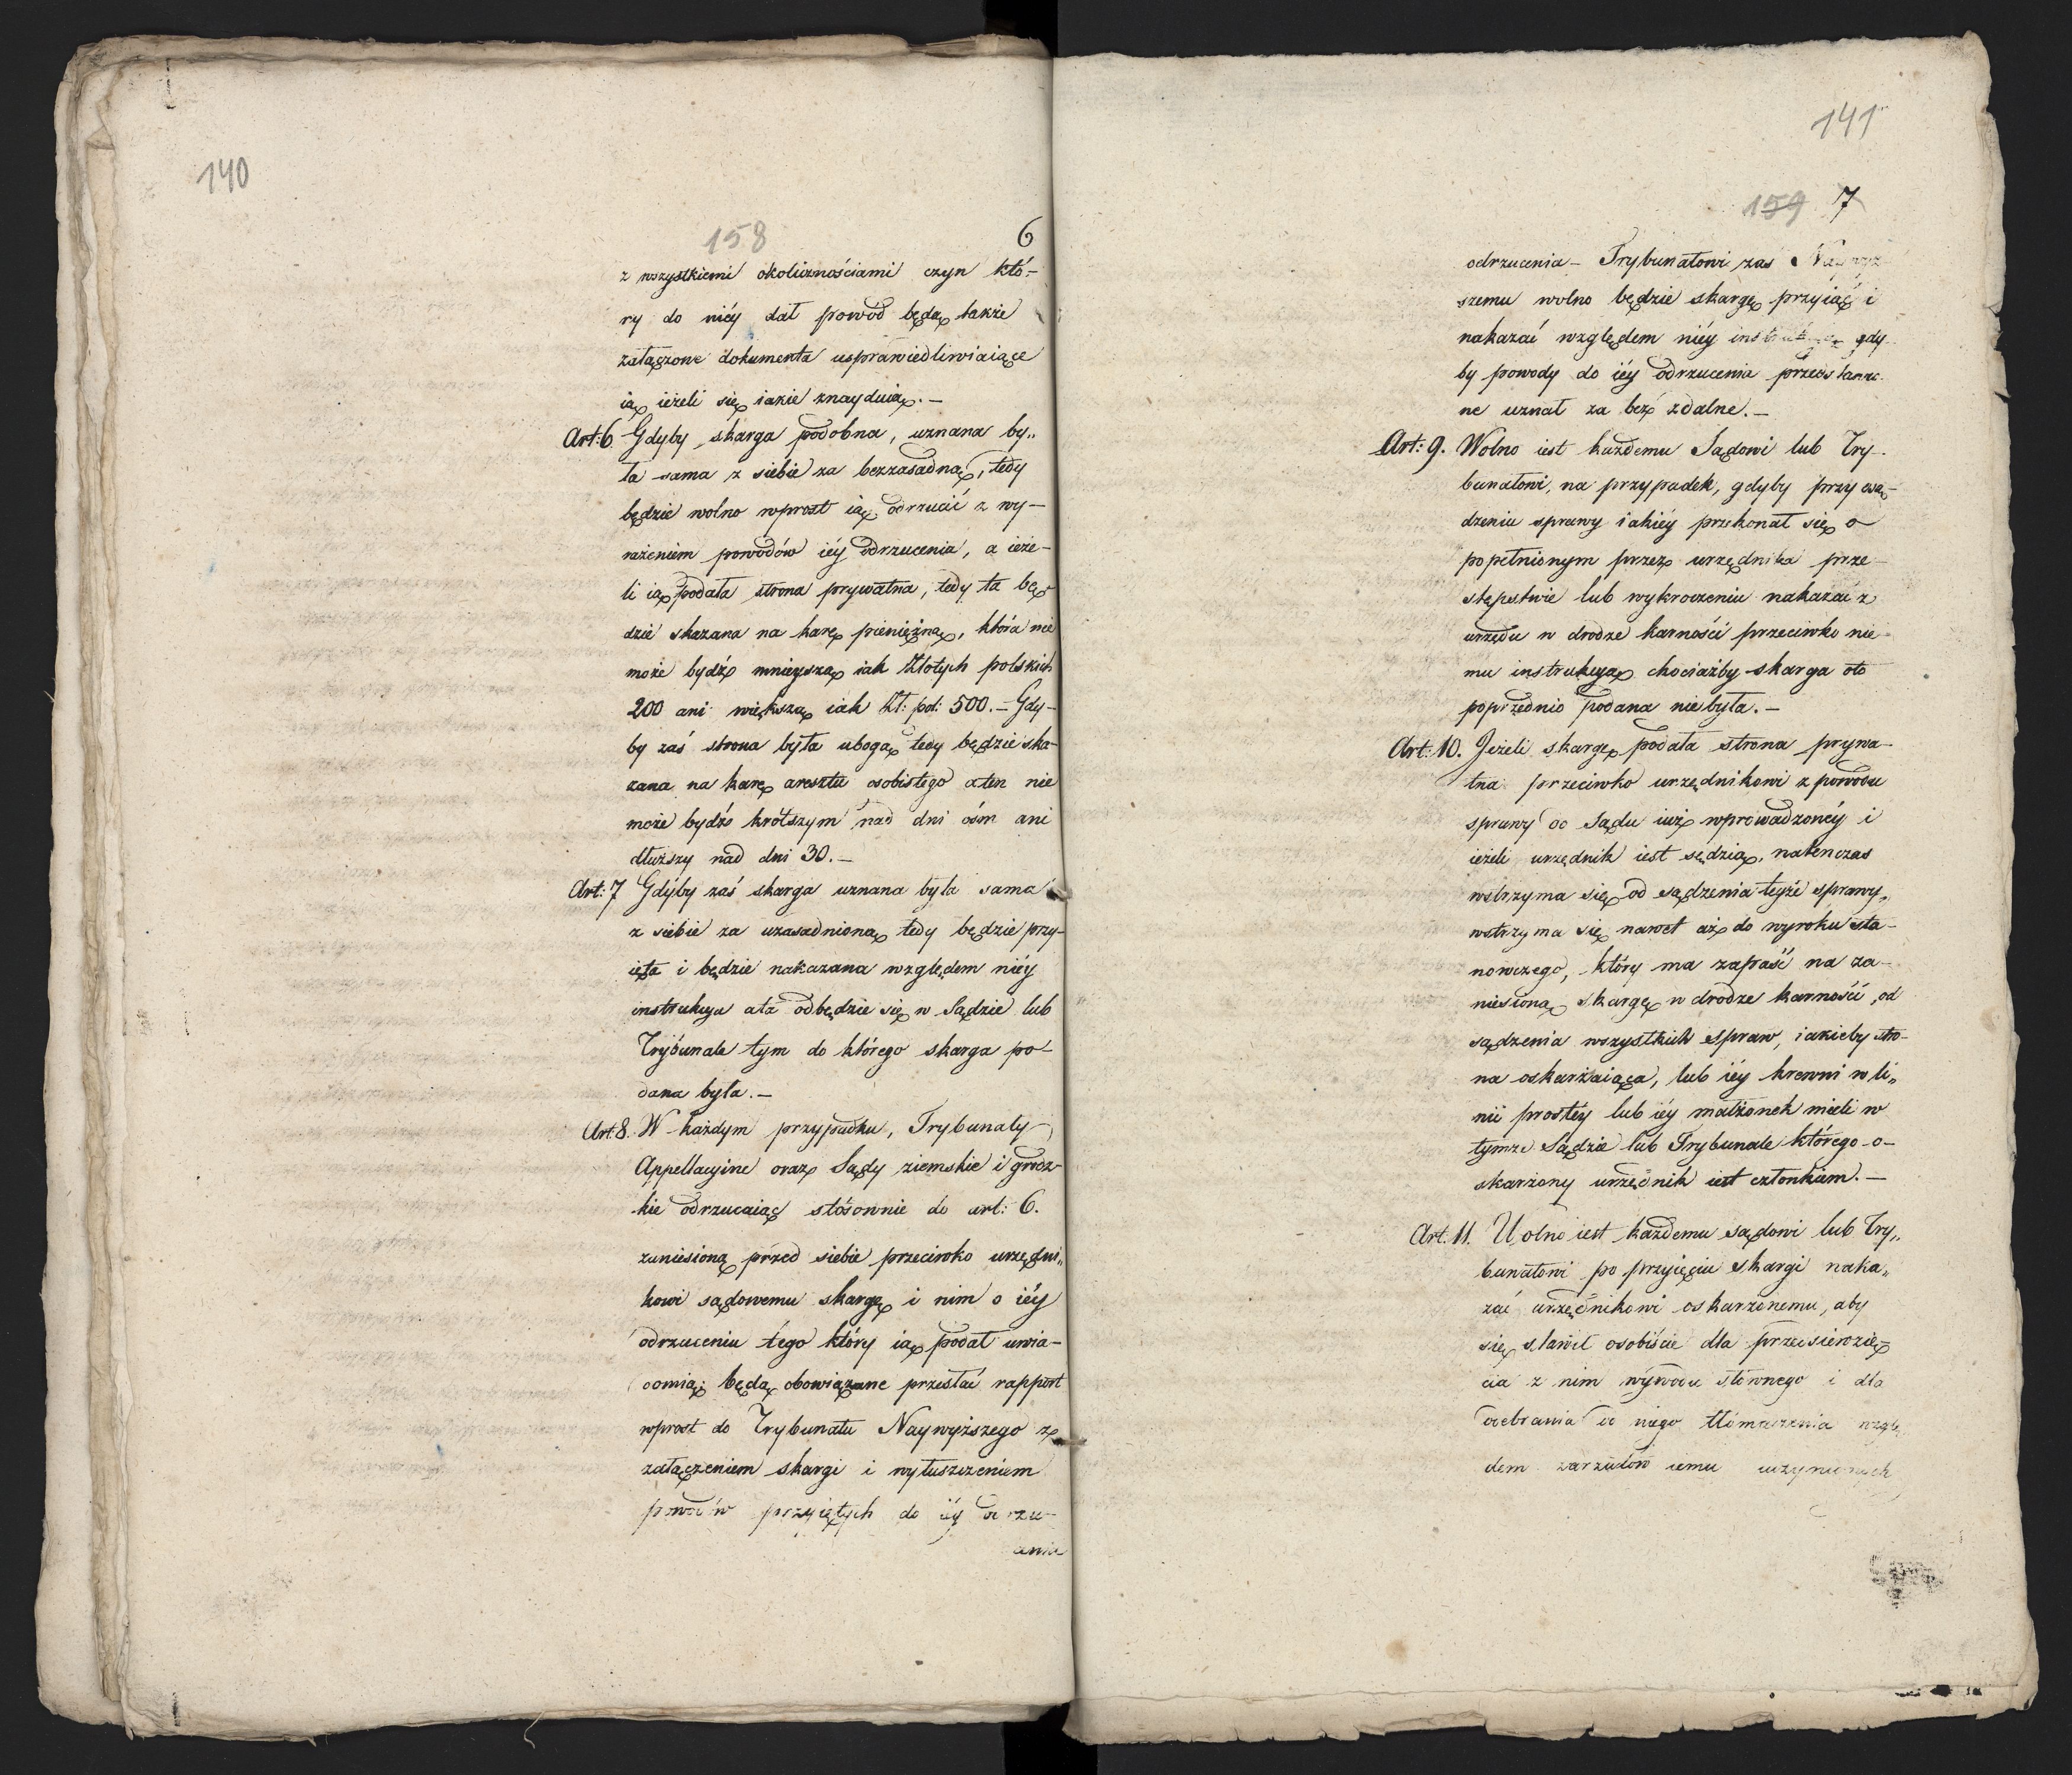 140
158
6
z wszystkiemi okolicznościami czyn któ-
ry do niéy dał powód będą także
załączone dokumenta usprawiedliwiaiące
ią ieżeli się iakie znayduią. –
Art: 6 Gdyby skarga podobna, uznana by„
ła sama z siebie za bezzasadną, tedy
będzie wolno wprost ią odrzucić z wy-
rażeniem powodów iéy odrzucenia, a ieże-
li ią podała strona prywatna, tedy ta bę-
dzie skazana na karę pieniężną, która nie
może bydź mnieyszą iak Złotych polskich
200 ani większą iak Zł: pol: 500. – Gdy-
by zaś strona była ubogą tedy będzie ska-
zana na karę aresztu osobistego a ten nie
może bydź krótszym nad dni ośm ani
dłuższy nad dni 30. –
Art: 7 Gdyby zaś skarga uznana była sama
z siebie za uzasadnioną tedy będzie przy-
ięta i będzie nakazana względem niéy
instrukcya a ta odbędzie się w Sądzie lub
Trybunale tym do którego skarga po-
dana była. –
Art. 8. W każdym przypadku, Trybunały
Appellacyine oraz Sądy ziemskie i grodz-
kie odrzucaiąc stósownie do art: 6.
zaniesioną przed siebie przeciwko urzędni„
kowi sądowemu skargę i nim o iéy
odrzuceniu tego który ią podał uwia-
domią; będą obowiązane przesłać rapport
wprost do Trybunału Naywyższego z
załączeniem skargi i wyłuszczeniem
powodów przyiętych do iéy odrzu-
cenia
141
159 7
odrzucenia – Trybunałowi zas Naywyż-
szemu wolno będzie skargę przyiąć i
nakazać względem niéy gdy-
by powody do iéy odrzucenia przedstawio-
ne uznał za bez zdalne. –
Art: 9. Wolno iest każdemu Sądowi lub Try-
bunałowi, na przypadek, gdyby przy osą-
dzeniu sprawy iakiéy przekonał się o
popełnionym przez urzędnika prze-
stępstwie lub wykroczeniu nakazać z
urzędu w drodze karności przeciwko nie-
mu instrukcyą chociażby skarga o to
poprzednio podana nie była. –
Art: 10. Jeżeli skargę podała strona prywa-
tna przeciwko urzędnikowi z powodu
sprawy do Sądu iuż wprowadzonéy i
ieżeli urzędnik iest sędzią, natenczas
wstrzyma się od sądzenia teyże sprawy„
wstrzyma się nawet aż do wyroku sta-
nowczego, który ma zapaść na za-
niesioną skargę w drodze karności, od
sądzenia wszystkich spraw, iakieby stro-
na oskarżaiąca, lub iéy krewni w li„
nii prostéy lub iéy małżonek mieli w
tymże Sądzie lub Trybunale którego o-
skarżony urzędnik iest członkiem. –
Art. 11. Wolno iest każdemu sądowi lub Try„
bunałowi po przyięciu skargi naka„
zać urzędnikowi oskarżonemu, aby
się stawił osobiście dla przedsięwzię-
cia z nim wywodu słownego i dla
odebrania od niego tłómaczenia wzglę-
dem zarzutów iemu uczynionych